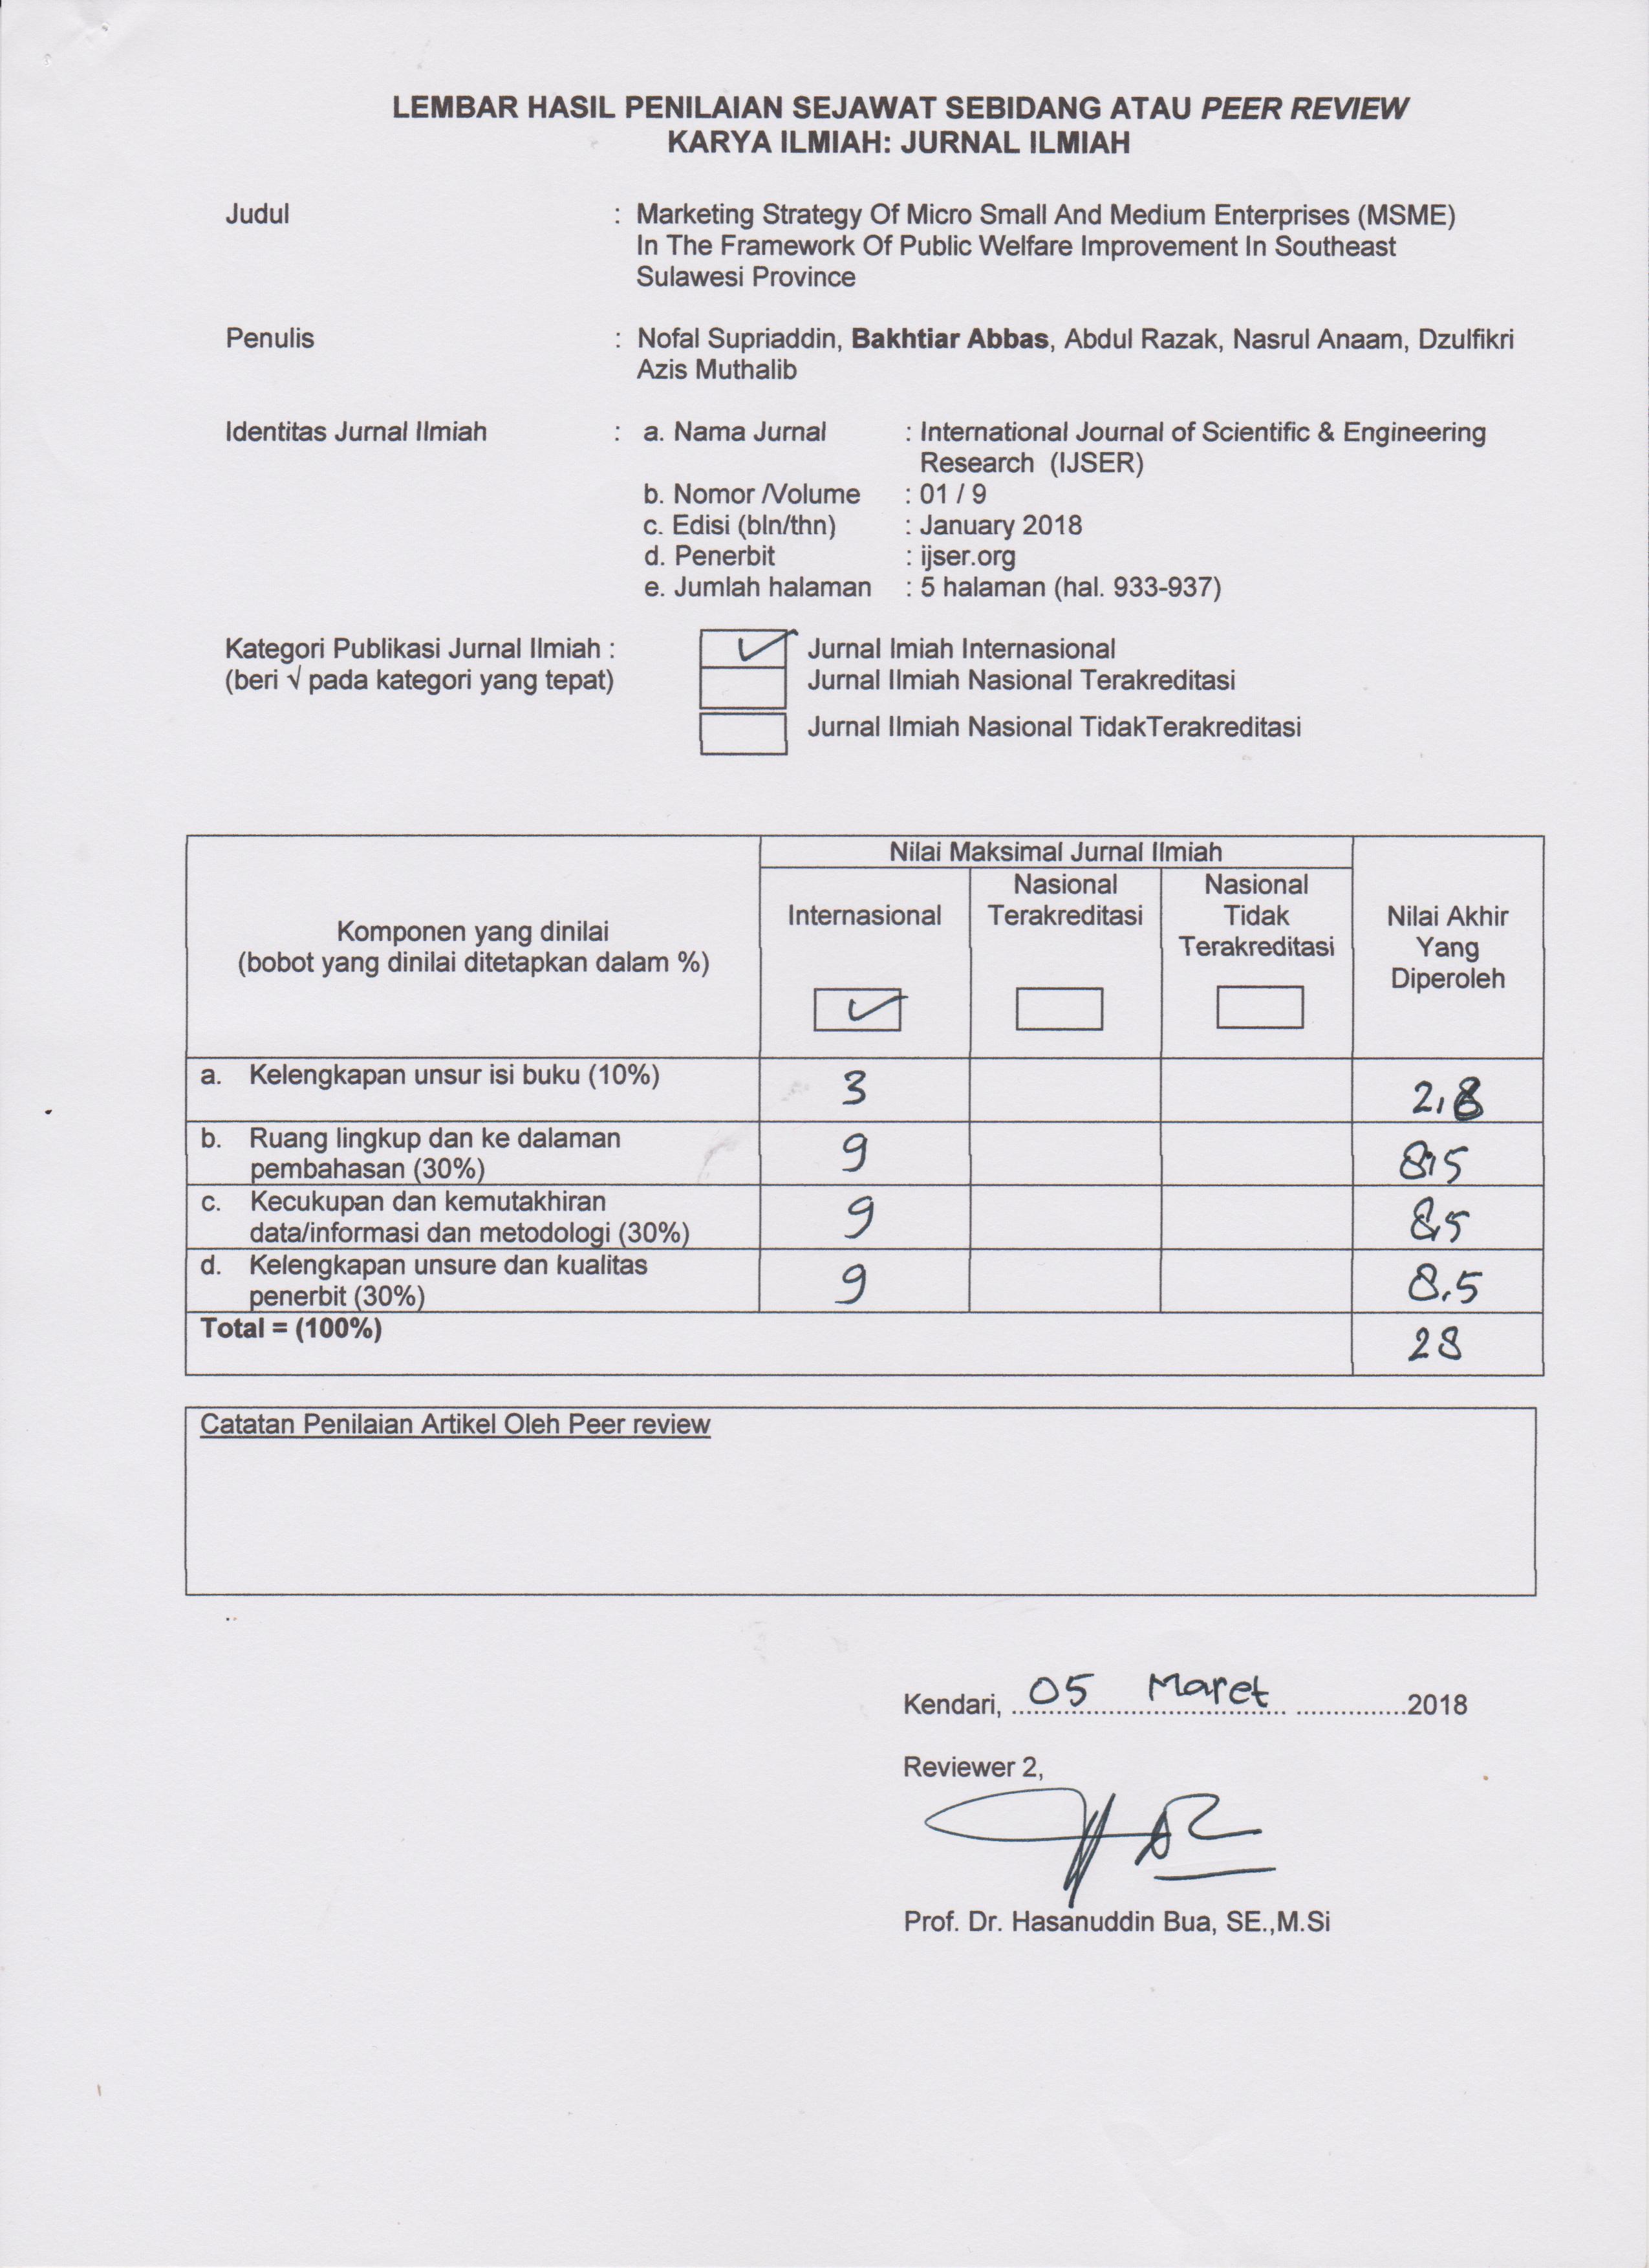 LEMBAR HASIL PENILAIAN SEJAWAT SEBIDANG ATAU PEER REVIEW
KARYA ILMIAH: JURNAL ILMIAH
Judul : Marketing Strategy Of Micro Small And Medium Enterprises (MSME)
In The Framework Of Public Welfare Improvement In Southeast
Sulawesi Province
Penulis : Nofal Supriaddin, Bakhtiar Abbas, Abdul Razak, Nasrul Anaam, Dzulfikri
Azis Muthalib
Identitas Jurnal Ilmiah : a. Nama Jurnal : International Journal of Scientific & Engineering
Research (IJSER)
b. Nomor /Volume : 01 / 9
c. Edisi (bln/thn) : January 2018
d. Penerbit : ijser.org
e. Jumlah halaman : 5 halaman (hal. 933-937)
Kategori Publikasi Jurnal Ilmiah : ✓ Jurnal Imiah Internasional
(beri √ pada kategori yang tepat) Jurnal Ilmiah Nasional Terakreditasi
Jurnal Ilmiah Nasional TidakTerakreditasi
Komponen yang dinilai
(bobot yang dinilai ditetapkan dalam %)
Nilai Maksimal Jurnal Ilmiah
Internasional
✓
Nasional
Terakreditasi
Nasional
Tidak
Terakreditasi
Nilai Akhir
Yang
Diperoleh
a. Kelengkapan unsur isi buku (10%) 3 2,8
b. Ruang lingkup dan ke dalaman
pembahasan (30%) 9 8,5
c. Kecukupan dan kemutakhiran
data/informasi dan metodologi (30%) 9 8,5
d. Kelengkapan unsure dan kualitas
penerbit (30%) 9 8.5
Total = (100%) 28
Catatan Penilaian Artikel Oleh Peer review
Kendari, 05 Maret 2018
Reviewer 2,
Prof. Dr. Hasanuddin Bua, SE.,M.Si